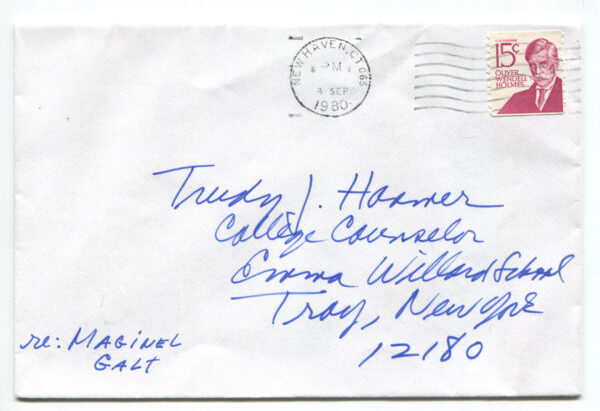 NEW HAVEN, CT 065
PM
8 SEP
1980
U.S. POSTAGE
15¢
OLIVER
WENDELL
HOLMES
Trudy J. Hanmer
College Counselor
Emma Willard School
Troy, New York
12180
re: MAGINEL
GALT